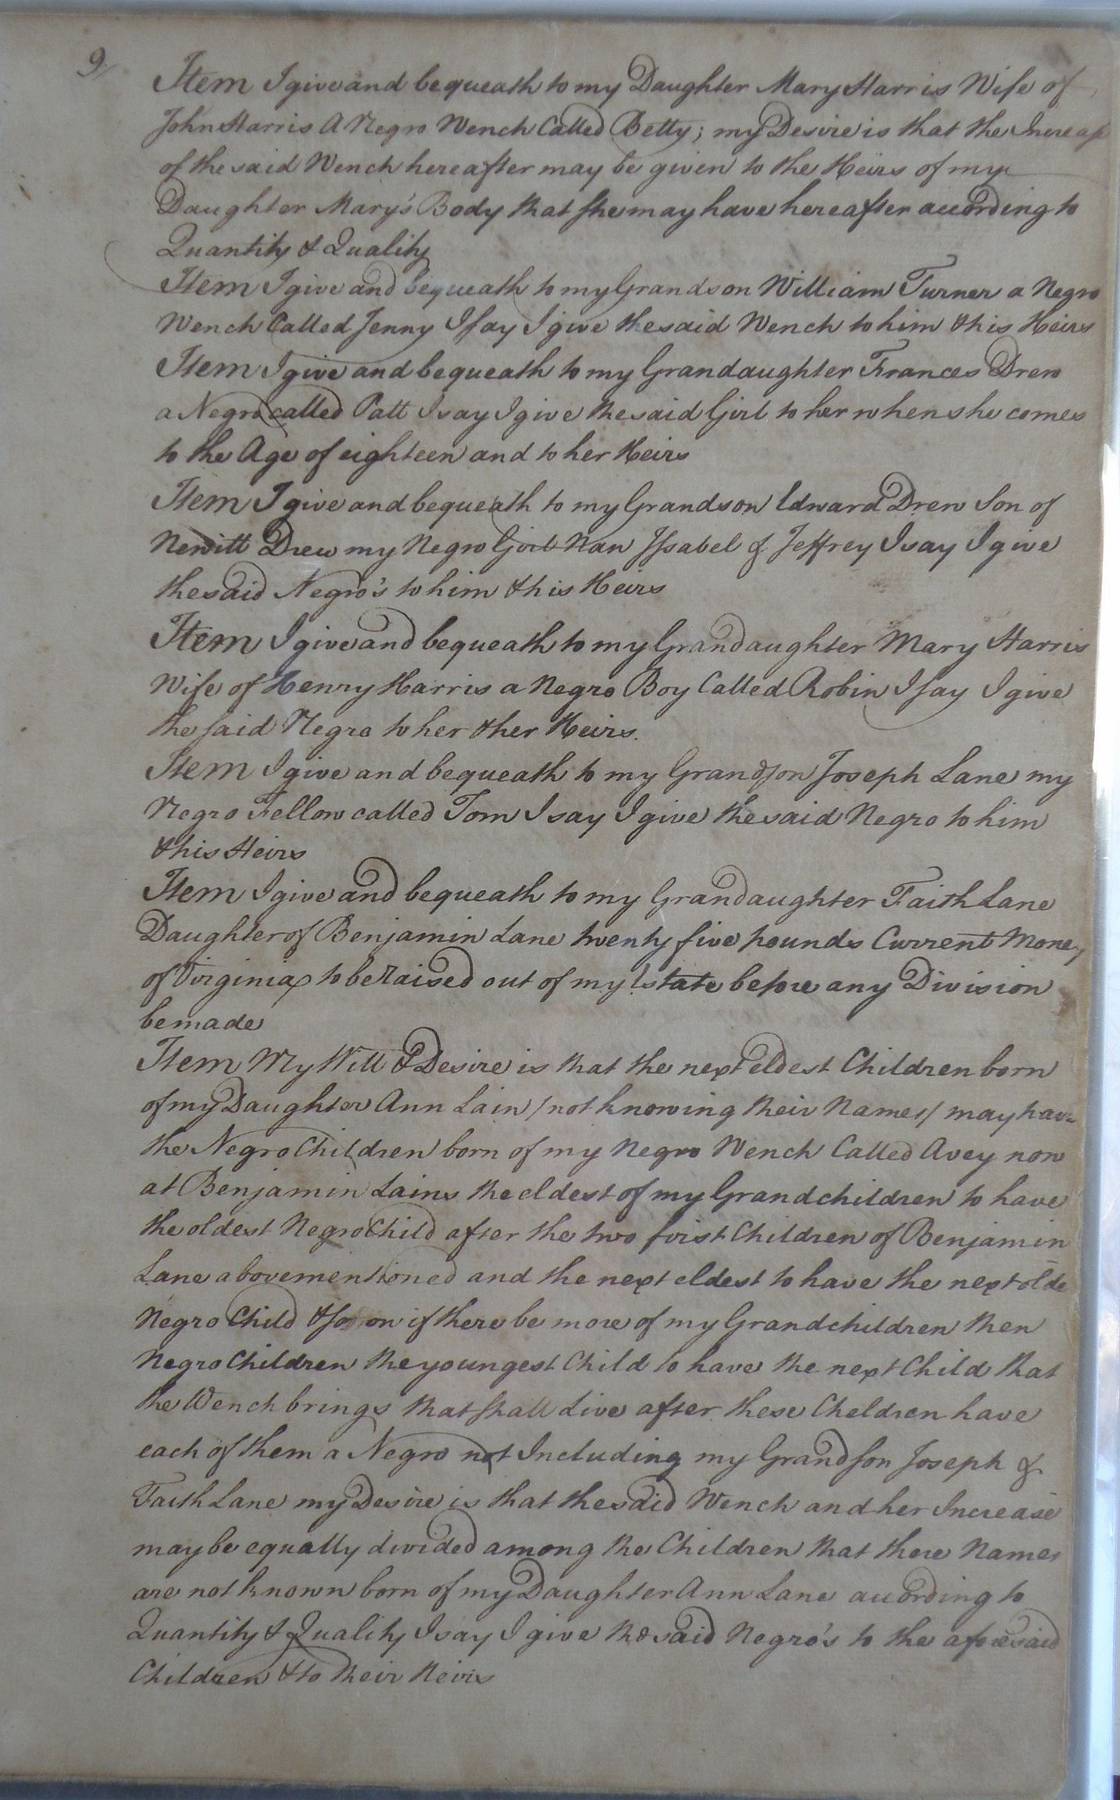 9/
Item I give and bequeath to my Daughter Mary Harris Wife of
John Harris A Negro Wench Called Betty; my Desire is that the Increas
of the said Wench hereafter may be given to the Heirs of my
Daughter Mary's Body that she may have hereafter according to
Quantity & Quality
Item I give and bequeath to my Grandson William Turner a Negro
Wench Called Jenny I say I give the said Wench to him & his Heirs
Item I give and bequeath to my Grandaughter Frances Drew
a Negro called Patt I say I give the said Girl to her when she comes
to the Age of eighteen and to her Heirs
Item I give and bequeath to my Grandson Edward Drew Son of
Newitt Drew my Negro Girl Nan Isabel & Jeffrey I say I give
the said Negro's to him & his Heirs
Item I give and bequeath to my Grandaughter Mary Harris
Wife of Henry Harris a Negro Boy Called Robin I say I give
the said Negro to her & her Heirs.
Item I give and bequeath to my Grandson Joseph Lane my
Negro Fellow called Tom I say I give the said Negro to him
& his Heirs
Item I give and bequeath to my Grandaughter Faith Lane
Daughter of Benjamin Lane twenty five pounds Current Money
of Virginia to be Raised out of my Estate before any Division
be made
Item My Will & Desire is that the next eldest Children born
of my Daughter Ann Lain /not knowing their Names/ may have
the Negro Children born of my Negro Wench Called Avey now
at Benjamin Lains the eldest of my Grandchildren to have
the oldest Negro Child after the two first Children of Benjamin
Lane abovementioned and the next eldest to have the next olde
Negro Child & so on if there be more of my Grandchildren then
Negro Children the youngest Child to have the next Child that
the Wench brings that shall Live after these Cheldren have
each of them a Negro not Including my Grandson Joseph &
Faith Lane my Desire is that the said Wench and her Increase
may be equally divided among the Children that there Names
are not known born of my Daughter Ann Lane according to
Quantity & Quality I say I give the said Negro's to the aforesaid
Children & to their Heirs